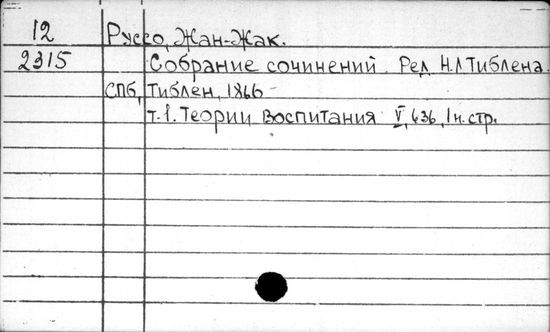 12 Руссо, Жан-Жак.
2315 Собрание сочинений. Ред. Н.Л.Тиблена.
СПб, Тиблен, 1866-
т.1. Теории воспитания V, 636, 1 н. стр.